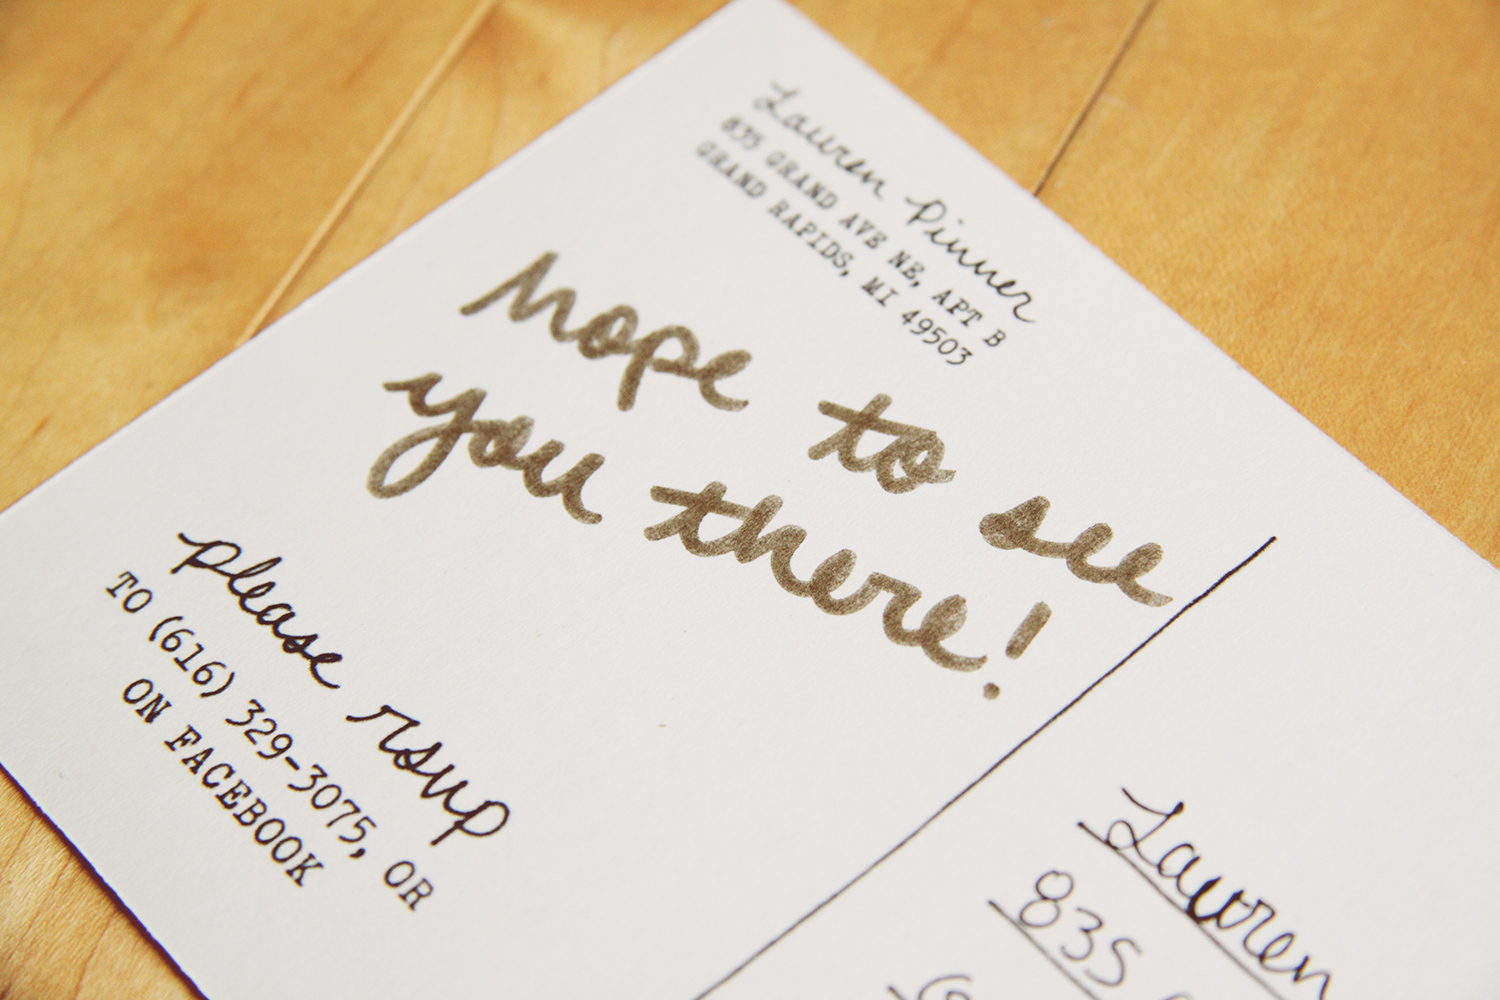 Lauren Pinner
835 GRAND AVE NE, APT B
GRAND RAPIDS, MI 49503
Hope to see
you there!
please rsvp
TO (616) 329-3075, OR
ON FACEBOOK
Lauren
835